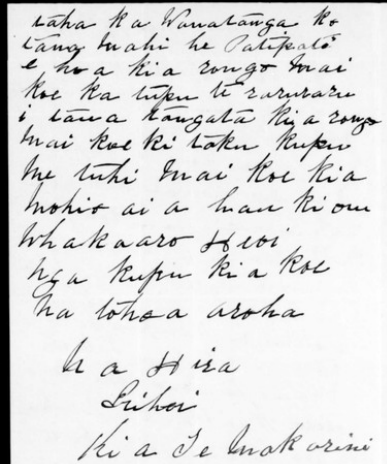 taha ka Wanatanga ko
tana mahi he Patipati
e hoa kia rongo mai
koe ka tupu te raruraru
i taua tangata kia rongo
mai koe ki taku kupu
me tuhi mai koe kia
mohio ai a hau ki ou
whakaaro Heoi
nga kupu kia koe
na to hoa aroha
Na Hira
Kia Te Makarini